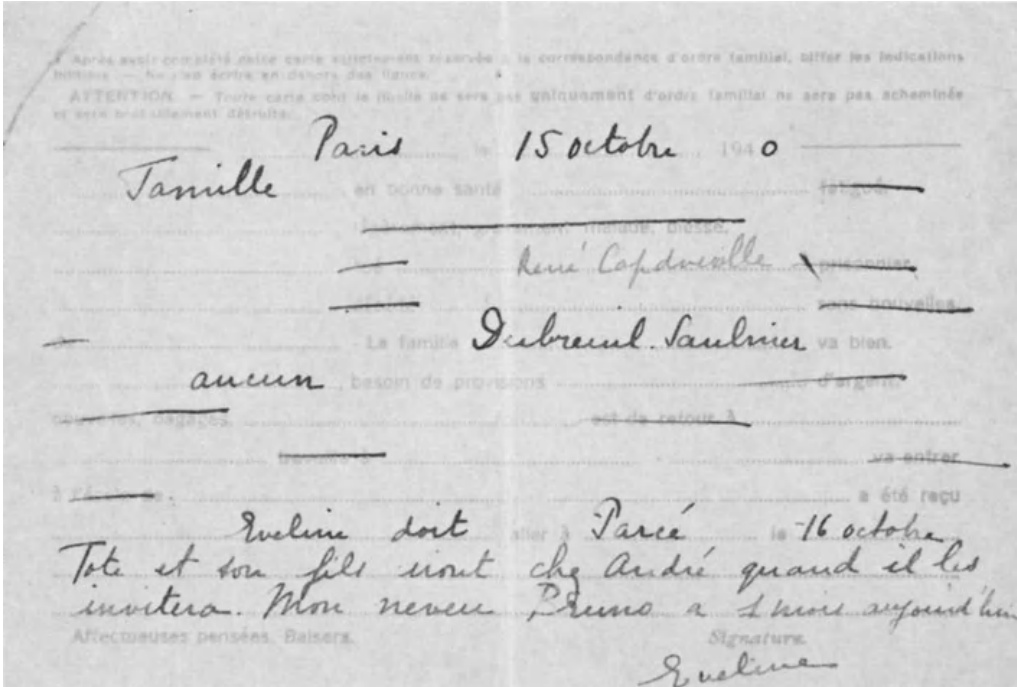 Après avoir complété cette carte strictement réservée à la correspondance d'ordre familial, biffer les indications
inutiles. — Ne rien écrire en dehors des lignes.
ATTENTION. — Toute carte dont le libellé ne sera pas uniquement d'ordre familial ne sera pas acheminée
et sera probablement détruite.
Paris le 15 octobre 1940
Famille en bonne santé fatigué.
légèrement, gravement malade, blessé.
René Capdevielle prisonnier.
décédé sans nouvelles
de La famille Dubreuil-Saulnier va bien.
aucun besoin de provisions d'argent.
nouvelles, bagages. est de retour à
travaille à va entrer
a été reçu
Eveline doit aller à Parcé le 16 octobre
Tote et son fils iront chez André quand il les
invitera. Mon neveu Bruno a 1 mois aujourd'hui
Affectueuses pensées. Baisers. Signature.
Eveline